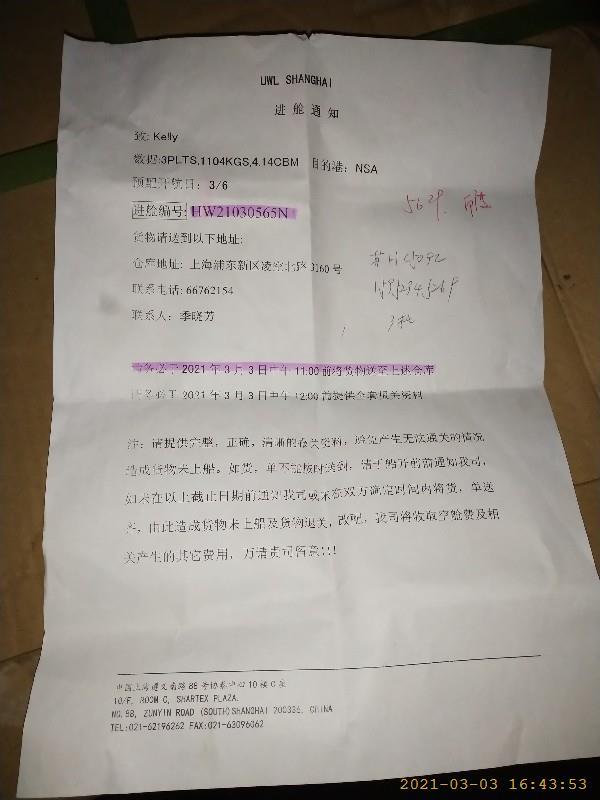 UWL SHANGHAI
进舱通知
致: Kelly
数据:3PLTS,1104KGS,4.14CBM 目的港: NSA
预配开航日: 3/6
进舱编号: HW21030565N
5629.
货物请送到以下地址:
仓库地址: 上海浦东新区凌空北路3160号
联系电话: 66762154
联系人: 季晓芳
请务必于 2021 年 3 月 3 日中午 11:00 前将货物送至上述仓库
请务必于 2021 年 3 月 3 日中午 12:00 前提供全套报关资料
注: 请提供完整, 正确, 清晰的报关资料, 避免产生无法通关的情况
造成货物未上船。如货, 单不能按时送到, 请于船开前通知我司,
如未在以上截止日期前通知我司或未在双方确定时间内将货, 单送
至, 由此造成货物未上船及货物退关, 改配, 我司将收取空舱费及相
关产生的其它费用, 万请贵司留意!!!
中国上海遵义南路 88 号协泰中心 10 楼 C 座
10/F, ROOM C, SHARTEX PLAZA,
NO.88, ZUNYIN ROAD (SOUTH) SHANGHAI 200336, CHINA
TEL:021-62196262 FAX:021-63096062
2021-03-03 16:43:53